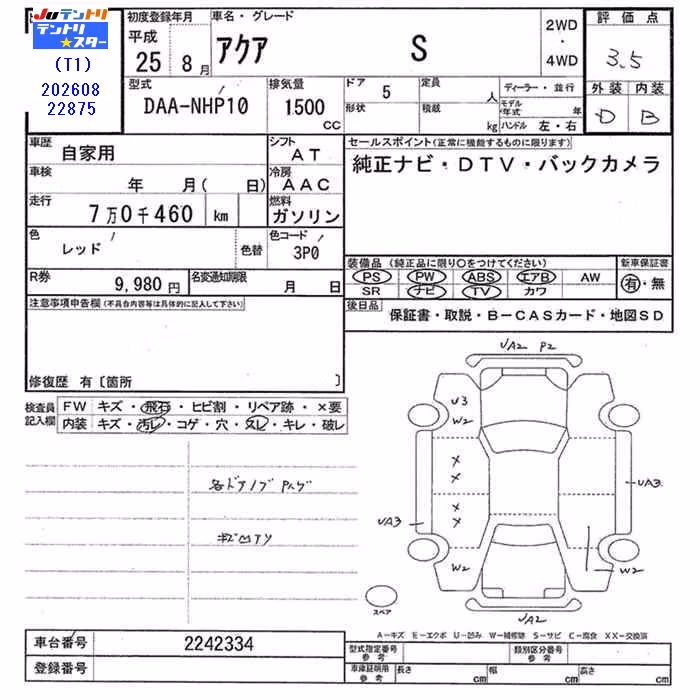 JUテントリ
テントリ★スター
(T1)
202608
22875
初度登録年月
平成
25 8月
車名・グレード
アクア S
2WD
・
4WD
評価点
3.5
外装 内装
D B
型式
DAA-NHP10
排気量
1500
CC
ドア 5
形状
定員 人
積載 kg
ディーラー・並行
モデル年式 年
ハンドル 左・右
車歴
自家用
シフト
AT
車検
年 月( 日)
冷房
AAC
走行
7万0千460 km
燃料
ガソリン
色
レッド
色替
色コード
3P0
R券
9,980円
名変通知期限
月 日
セールスポイント(正常に機能するものに限ります)
純正ナビ・DTV・バックカメラ
装備品(純正品に限り○をつけてください)
新車保証書
PS PW ABS エアB AW
SR ナビ TV カワ
有・無
後日品
保証書・取説・B-CASカード・地図SD
注意事項申告欄(不具合内容等は具体的に記入して下さい)
修復歴 有〔箇所 〕
検査員記入欄
FW キズ・飛石・ヒビ割・リペア跡・×要
内装 キズ・汚レ・コゲ・穴・スレ・キレ・破レ
各ドアノブ
UA2 P2
U3
W2
×
×
×
×
UA3
UA3
W2
W2
UA2
スペア
A-キズ E-エクボ U-凹み W-補修跡 S-サビ C-腐食 XX-交換済
車台番号
2242334
登録番号
型式指定番号
参考
類別区分番号
参考
車庫証明用
参考
長さ cm
幅 cm
高さ cm